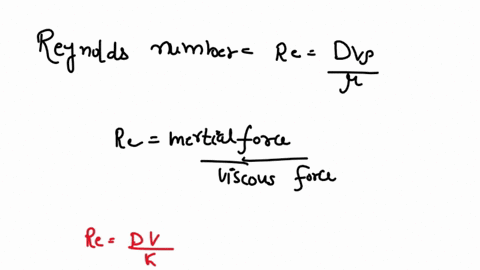 Reynolds number = Re = Dvρ / μ
Re = inertial force / viscous force
Re = DV / K